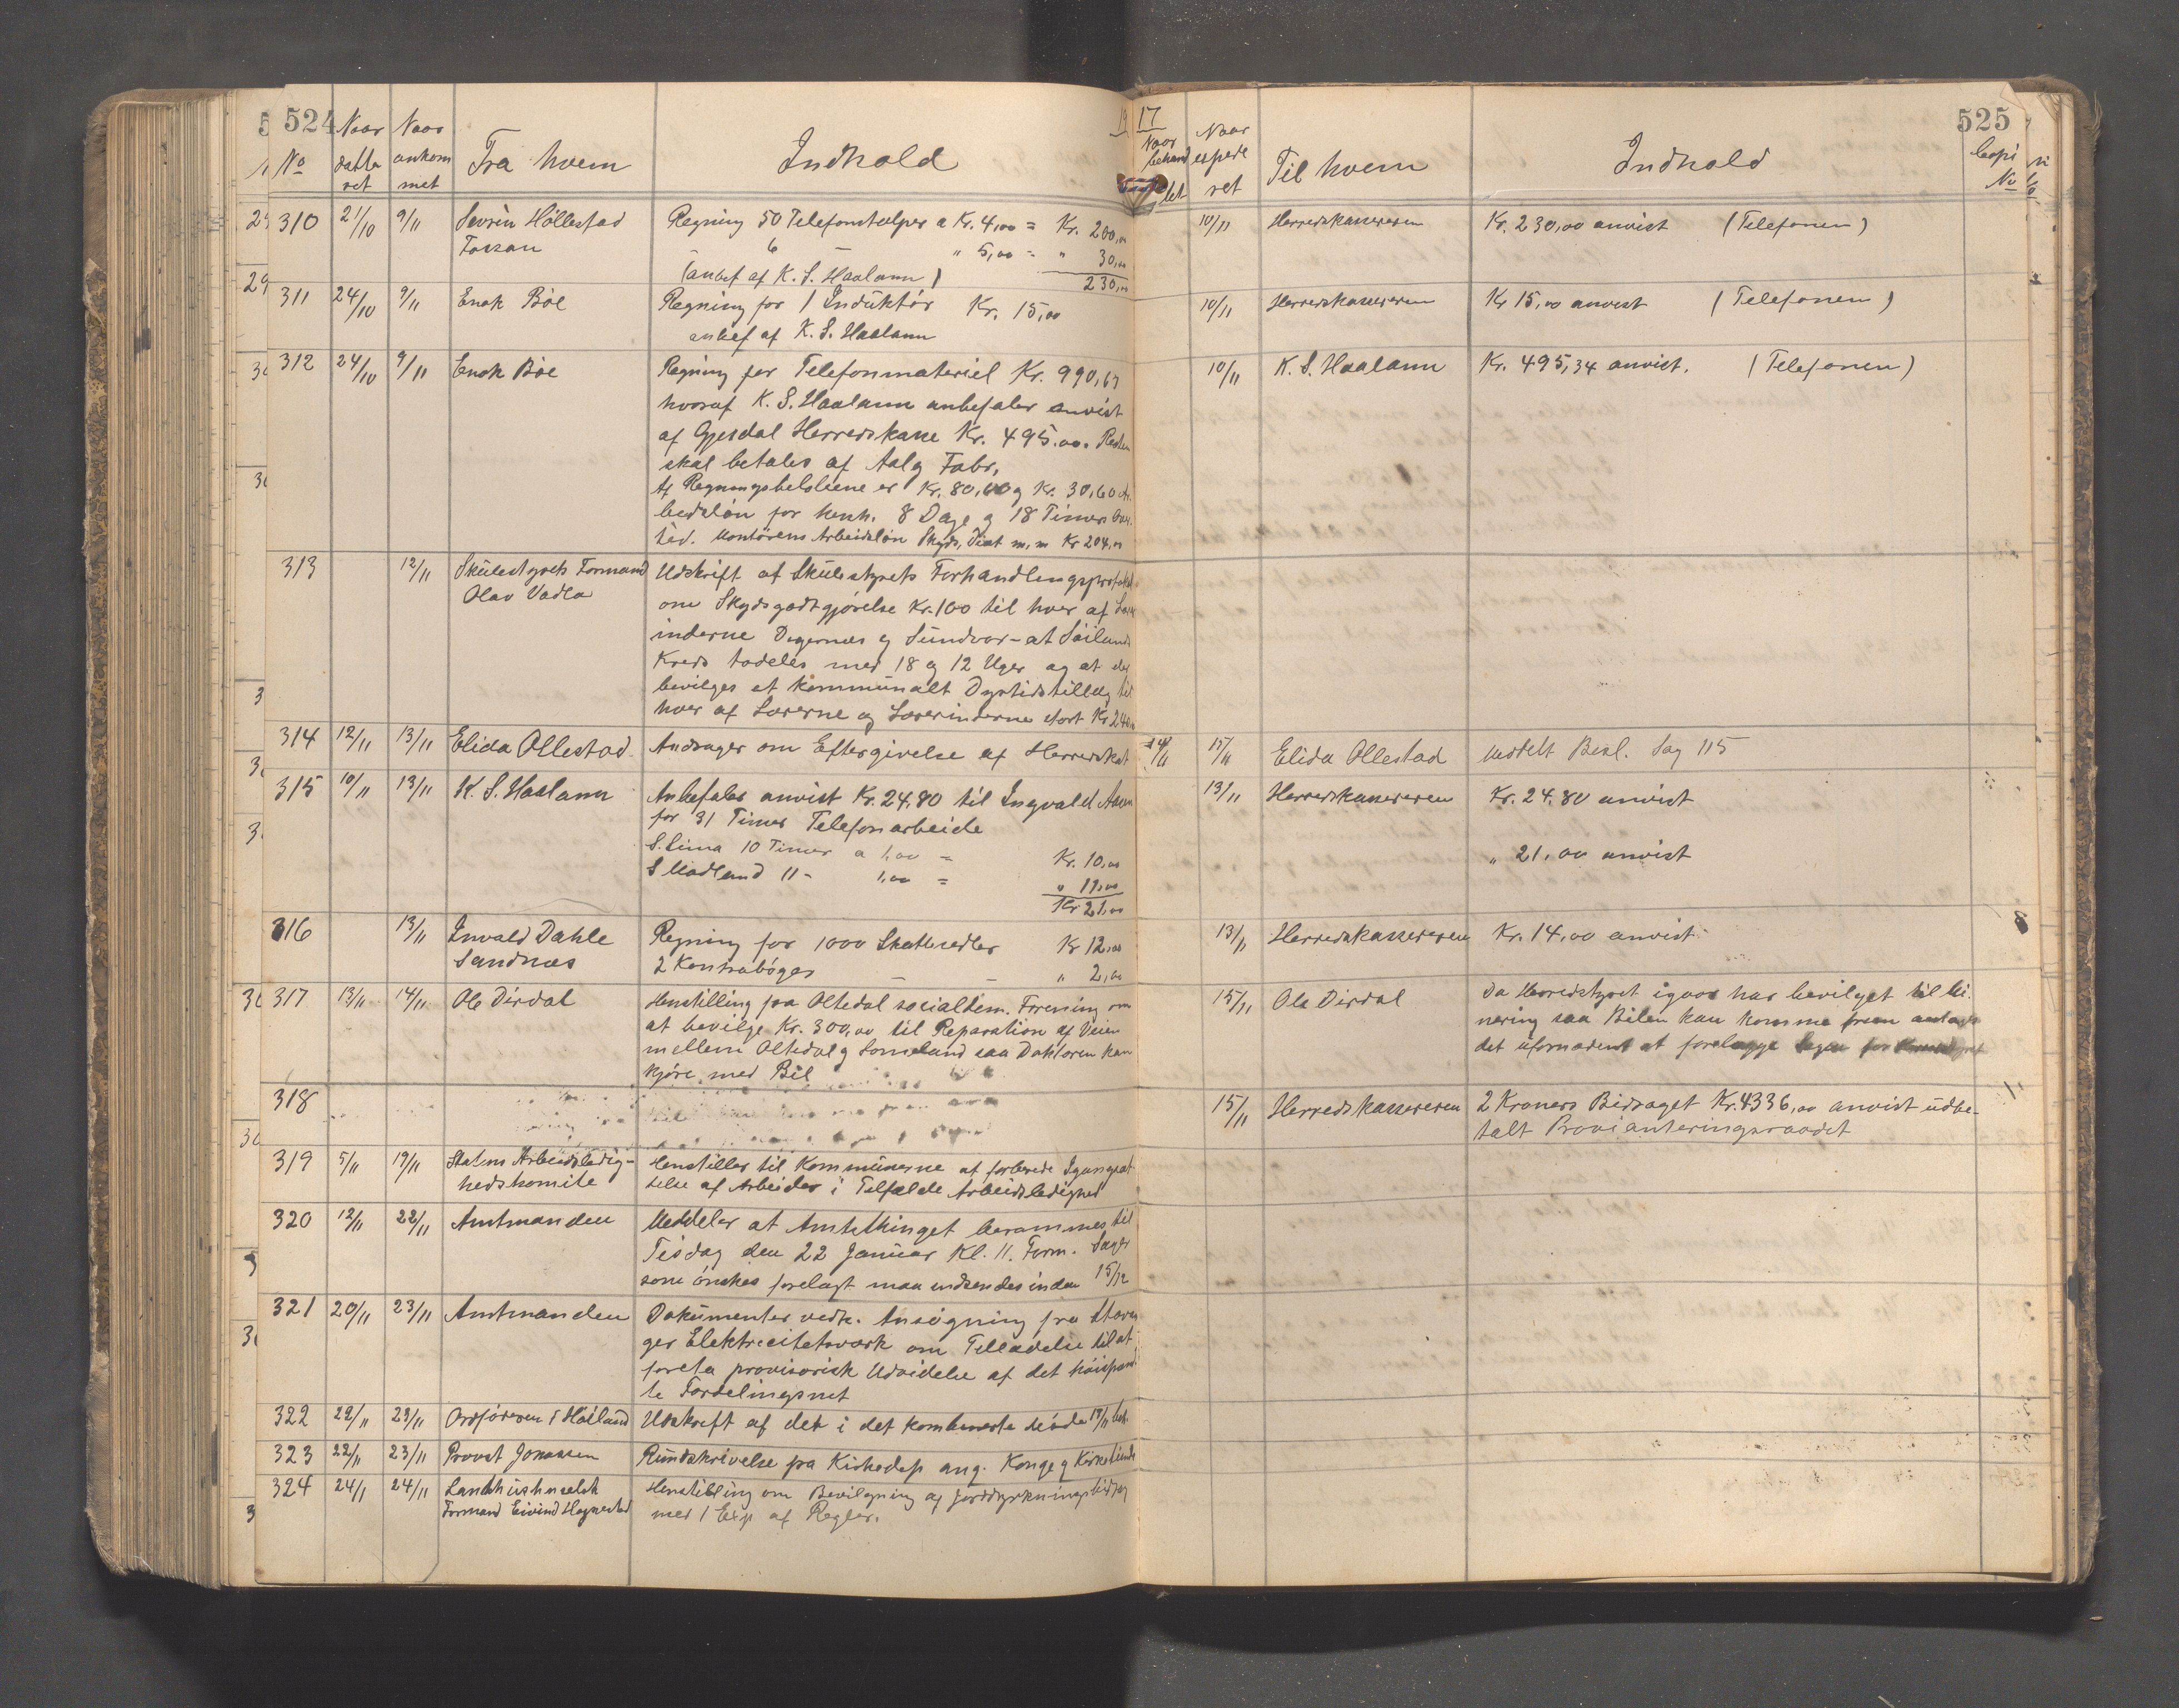 524
No
Naar datte ret
Naar ankom met
Fra hvem
Indhold
19
310 21/10 9/11 Sevrin Høllestad Regning 50 Telefonstolper a Kr. 4,00 = Kr. 200,00
Fossan 6 — " 5,00 = " 30,00
(anbef af K. S. Haaland) 230,00
311 24/10 9/11 Enok Bøe Regning for 1 Induktør Kr. 15,00
anbef af K. S. Haaland
312 24/10 9/11 Enok Bøe Regning for Telefonmateriel Kr. 990,67
hvoraf K. S. Haaland anbefaler anvist
af Gjesdal Herredskasse Kr. 495.00. Resten
skal betales af Aalg Fabr.
Af Regningsbelöbene er Kr. 80,00 og Kr. 30,60 Ar-
beidsløn for henh. 8 Dage og 18 Timers Over-
tid. Montørens Arbeidsløn Skyds, Diæt m, m Kr 204,00
313 12/11 Skulestyrets Formand Udskrift af Skulestyrets Forhandlingsprotokol
Olav Vadla om Skydsgodtgjørelse Kr. 100 til hver af Lær
inderne Degernæs og Sundvor – at Søilands
Kreds todeles med 18 og 12 Uger og at det
bevilges et kommunalt Dyrtidstillæg til
hver af Lærerne og Lærerinderne stort Kr 240,00
314 12/11 13/11 Elida Ollestad Andrager om Eftergivelse af Herredskat
315 10/11 13/11 K. S. Haaland Anbefaler anvist Kr. 24.80 til Ingvald Aasen
for 31 Timer Telefonarbeide
S. Lima 10 Timer a 1,00 = Kr. 10,00
S Madland 11 – 1,00 = " 11,00
Kr 21,00
316 13/11 Invald Dahle Regning for 1000 Skattesedler Kr 12,00
Sandnæs 2 Kontrabøger — — " 2,00
317 13/11 14/11 Ole Dirdal Henstilling fra Oltedal socialdem. Forening om
at bevilge Kr. 300,00 til Reparation af Veien
mellem Oltedal og Someland saa Doktoren kan
kjøre med Bil
318
319 5/11 19/11 Statens Arbeidsledig- Henstiller til Kommunerne at forberede Igangsæt
hedskomite telse af Arbeider i Tilfælde Arbeidsledighed
320 12/11 22/11 Amtmanden Meddeler at Amtsthinget berammes til
Tisdag den 22 Januar Kl. 11. Form. Sager
som ønskes forelagt maa indsendes inden 15/12
321 20/11 23/11 Amtmanden Dokumenter vedk. Ansøgning fra Stavan
ger Elektricitetsværk om Tilladelse til at
foreta provisorisk Udvidelse af det høispænd
te Fordelingsnet
322 22/11 23/11 Ordføreren i Høiland Udskrift af det i det kombinerte Møde 19/11 beh.
323 22/11 23/11 Provst Jonassen Rundskrivelse fra Kirkedep ang. Konge og Kirketiende
324 24/11 24/11 Landhusholdselsk Henstilling om Bevilgning af Jorddyrkningsbidrag
Formand Eivind Hognestad med 1 Exp af Regler.
17
525
Naar behand let
Naar expede ret
Til hvem
Indhold
Copi No
10/11 Herredskassereren Kr. 230,00 anvist (Telefonen)
10/11 Herredskassereren Kr 15,00 anvist (Telefonen)
10/11 K. S. Haaland Kr. 495,34 anvist. (Telefonen)
14/11 15/11 Elida Ollestad meddelt Besl. Sag 115
13/11 Herredskassereren Kr. 24.80 anvist
" 21.00 anvist
13/11 Herredskassereren Kr. 14,00 anvist
15/11 Ole Dirdal Da Herredstyret igaar har bevilget til
saa Bilen kan komme frem
det ufornødent at forelægge Sagen for
15/11 Herredskassereren 2 Kroners Bidraget Kr. 4336,00 anvist udbe-
talt Provianteringsraadet